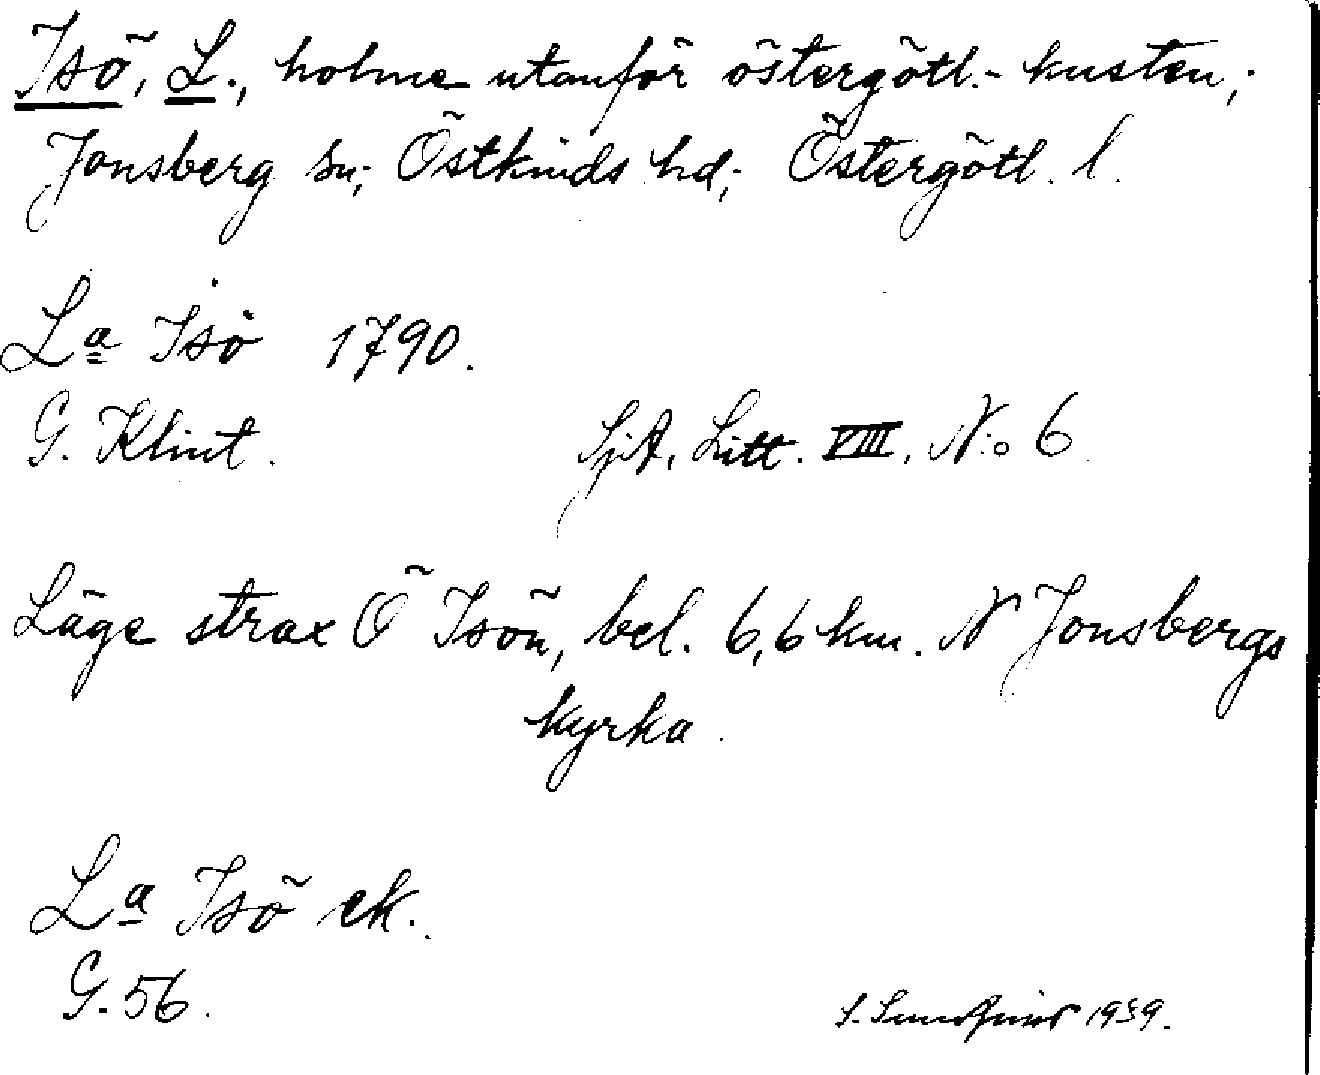 Isö, L., holme utanför östergötl.-kusten;
Jonsberg sn; Östkinds hd; Östergötl. l.
La Isö 1790.
G. Klint. SjA, Litt. VIII, N:o 6
Läge strax Ö Isön, bel. 6,6 km. N Jonsbergs
kyrka.
La Isö ek.
G. 56.
S. 1939.